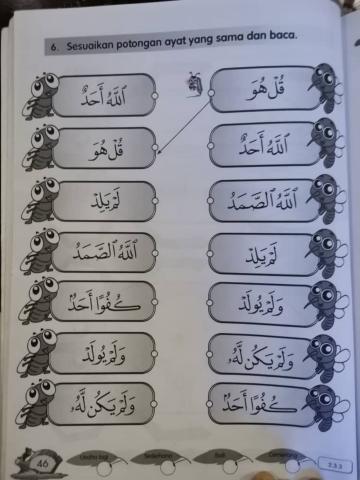 6. Sesuaikan potongan ayat yang sama dan baca.
اللَّهُ أَحَدٌ
قُلْ هُوَ
قُلْ هُوَ
اللَّهُ أَحَدٌ
لَمْ يَلِدْ
اللَّهُ الصَّمَدُ
اللَّهُ الصَّمَدُ
لَمْ يَلِدْ
كُفُوًا أَحَدٌ
وَلَمْ يُولَدْ
وَلَمْ يُولَدْ
وَلَمْ يَكُن لَّهُ
وَلَمْ يَكُن لَّهُ
كُفُوًا أَحَدٌ
46 Usaha lagi Sederhana Baik Cemerlang 2.3.3